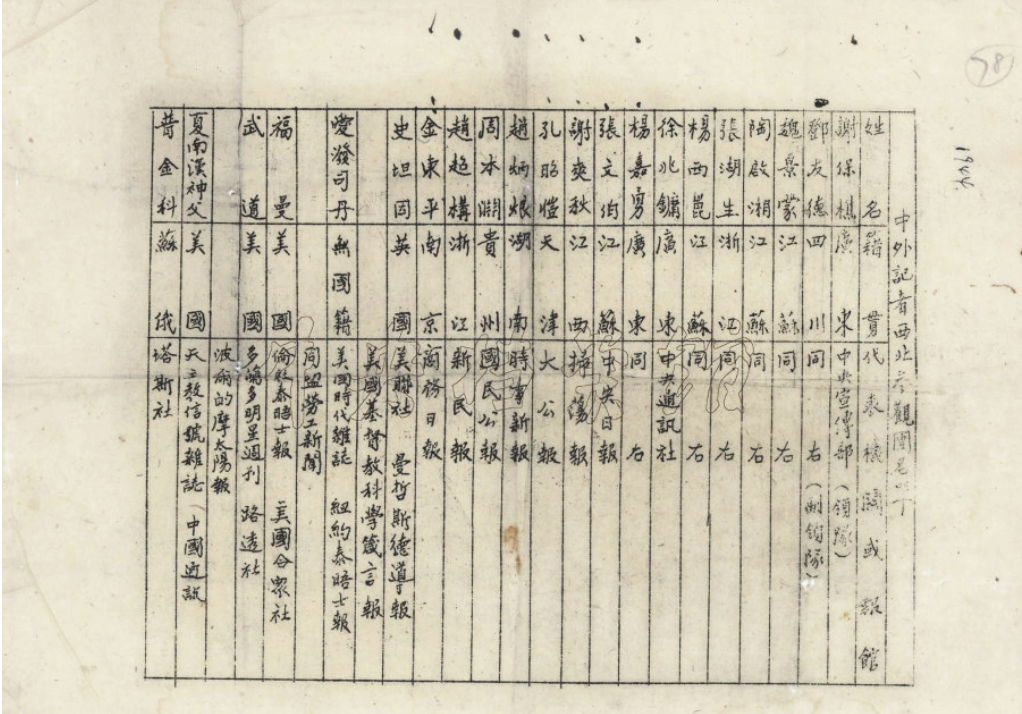 78
1944
中外記者西北參觀團名單
姓名 籍貫 代表機關或報館
謝保樵 廣東 中央宣傳部(領隊)
鄧友德 四川 同右(副領隊)
魏景蒙 江蘇 同右
陶啟湘 江蘇 同右
張湖生 浙江 同右
楊西崑 江蘇 同右
徐兆鏞 廣東 中央通訊社
楊嘉勇 廣東 同右
張文伯 江蘇 中央日報
謝爽秋 江西 掃蕩報
孔昭愷 天津 大公報
趙炳烺 湖南 時事新報
周本淵 貴州 國民公報
趙超構 浙江 新民報
金東平 南京 商務日報
史坦因 英國 美聯社 曼哲斯德導報
美國基督教科學箴言報
愛潑司丹 無國籍 美國時代雜誌 紐約泰晤士報
同盟勞工新聞
福曼 美國 倫敦泰晤士報 美國合眾社
武道 美國 多倫多明星週刊 路透社
波爾的摩太陽報
夏南漢神父 美國 天主教信號雜誌(中國通訊
普金科 蘇俄 塔斯社